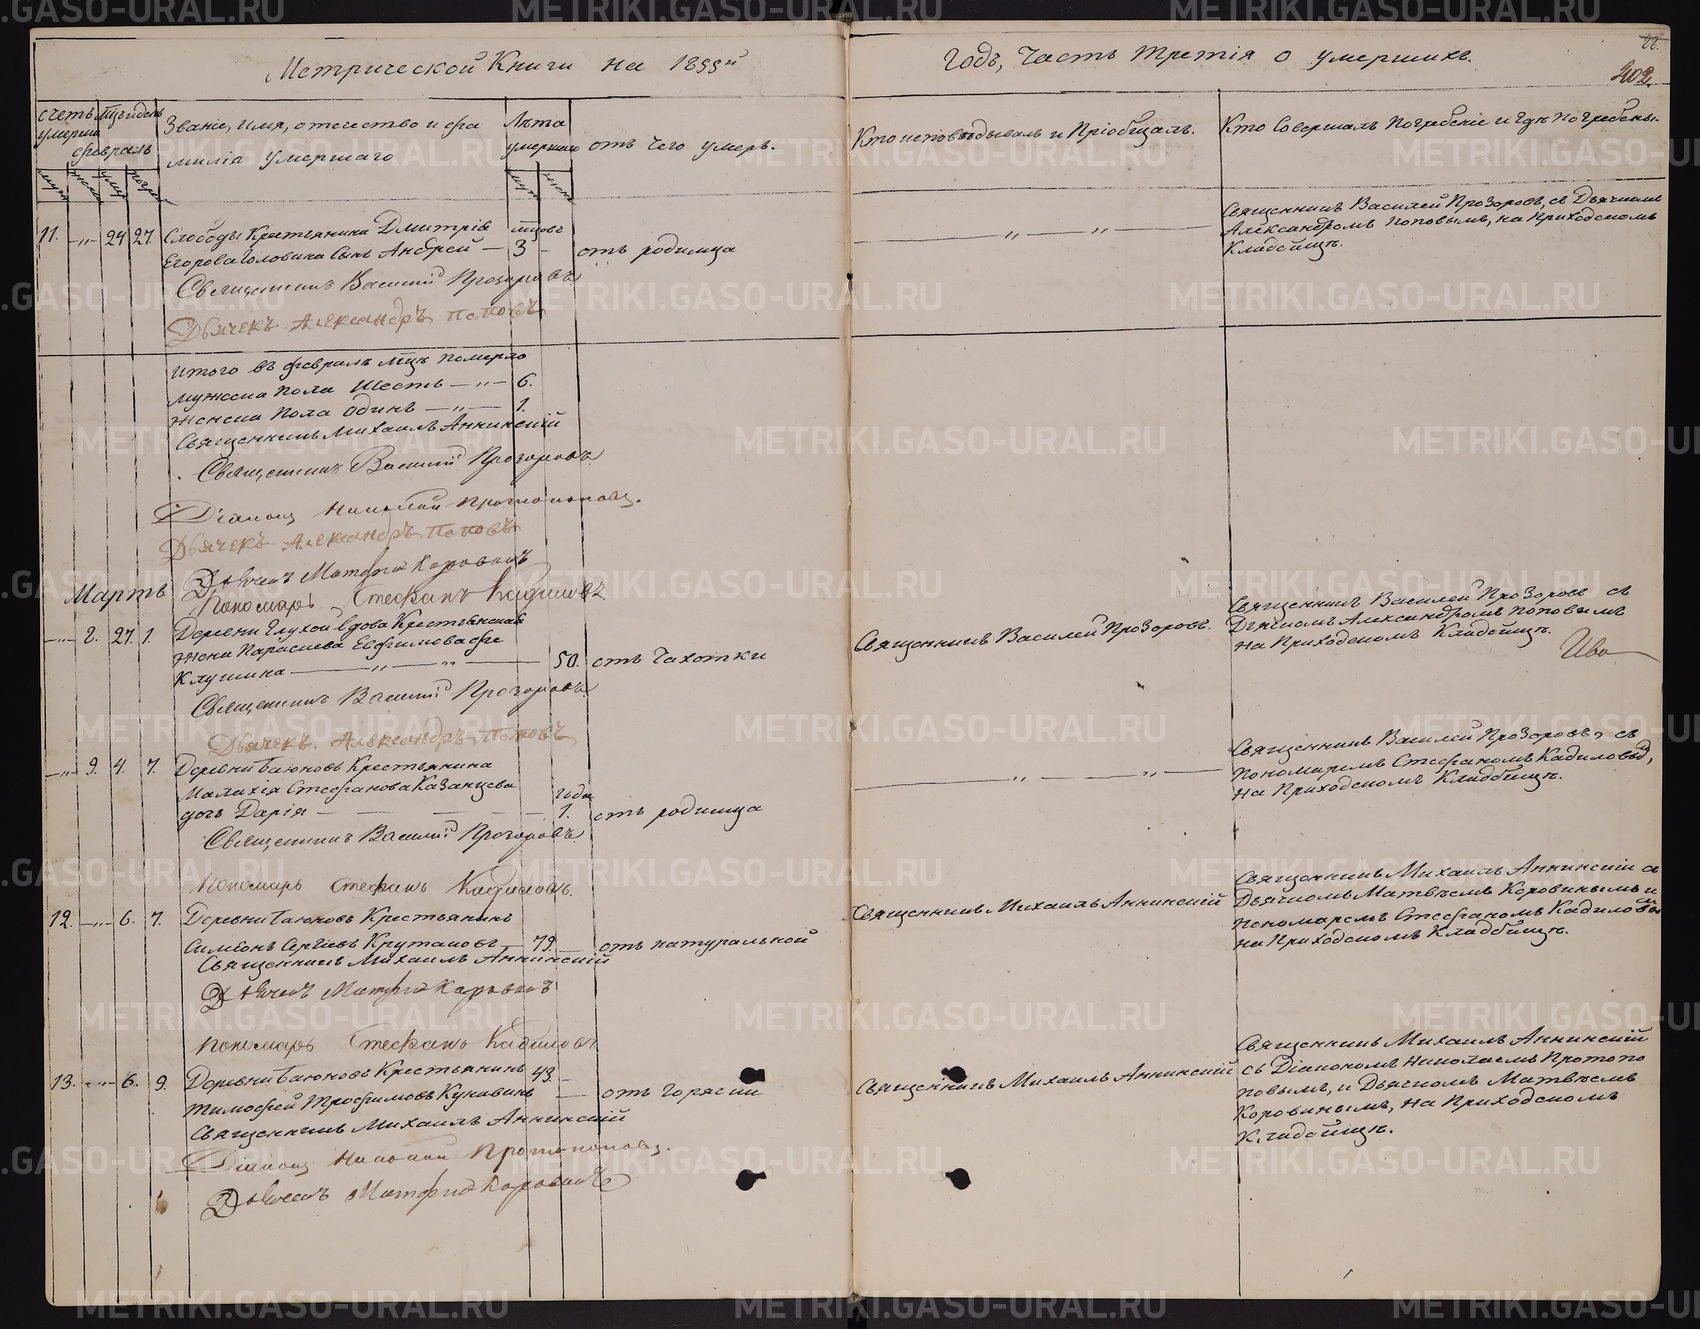 Метрической Книги на 1855й
Годъ, Часть Третія о умершихъ.
22.
202.
счетъ умерш
Мць и день
февраль
муж
жен
умер
погр
Званіе, имя, отечество и фа
милія умершаго
Лѣта
умершаго
муж
жен
отъ чего умеръ.
Кто исповѣдывалъ и Пріобщалъ.
Кто Совершалъ Погребеніе и гдѣ Погребены.
11. —„— 24 27. Слободы Крестьянина Дмитрія
мцовъ
Егорова Головина Сынъ Андрей — 3 — отъ родимца
— „ — „ —
Священникъ Василей Прозоровъ, съ Дьячкомъ
Александромъ Поповымъ, на Приходскомъ
Кладбищѣ.
Священникъ Василій Прозоровъ
Дьячекъ Александръ Поповъ
Итого въ февралѣ мцѣ померло
Мужеска Пола Шесть —„— 6.
Женска Пола Одинъ —„— 1.
Священникъ Михаилъ Аннинскій
Священникъ Василій Прозоровъ
Діаконъ Николай Протопоповъ.
Дьячекъ Александръ Поповъ
Дьячекъ Матфей Коровинъ
Мартъ
Пономарь Стефанъ Кадиловъ
—„— 8. 27. 1. Деревни Глухой вдова Крестьянская
Жена Параскева Евфимова
Клушина —„— 50. отъ Чахотки
Священникъ Василей Прозоровъ.
Священникъ Василей Прозоровъ съ
Дьячкомъ Александромъ Поповымъ
на Приходскомъ Кладбищѣ.
Ива
Священникъ Василій Прозоровъ
Дьячекъ Александръ Поповъ
—„— 9. 4. 7. Деревни Баюновъ Крестьянина
Малахія Стефанова Казанцева
года
дочь Дарія — 1. отъ родимца
— „ — „ —
Священникъ Василей Прозоровъ, съ
Пономаремъ Стефаномъ Кадиловымъ,
на Приходскомъ Кладбищѣ.
Священникъ Василій Прозоровъ
Пономарь Стефанъ Кадиловъ.
12. —„— 6. 7. Деревни Баюновъ Крестьянинъ
Симеонъ Сергѣевъ Крутаковъ — 79. — отъ натуральной
Священникъ Михаилъ Аннинскій
Священникъ Михаилъ Аннинскій съ
Дьячкомъ Матвѣемъ Коровинымъ и
Пономаремъ Стефаномъ Кадиловымъ
на Приходскомъ Кладбищѣ.
Священникъ Михаилъ Аннинскій
Дьячекъ Матфей Коровинъ
Пономарь Стефанъ Кадиловъ
13. —„— 6. 9. Деревни Баюновъ Крестьянинъ 43. —
Тимофей Трофимовъ Кукавинъ — отъ Горячки
Священникъ Михаилъ Аннинскій
Священникъ Михаилъ Аннинскій
съ Діакономъ Николаемъ Протопо
повымъ, и Дьячкомъ Матвѣемъ
Коровинымъ, на Приходскомъ
Кладбищѣ.
Священникъ Михаилъ Аннинскій
Діаконъ Николай Протопоповъ.
Дьячекъ Матфей Коровинъ
METRIKI.GASO-URAL.RU